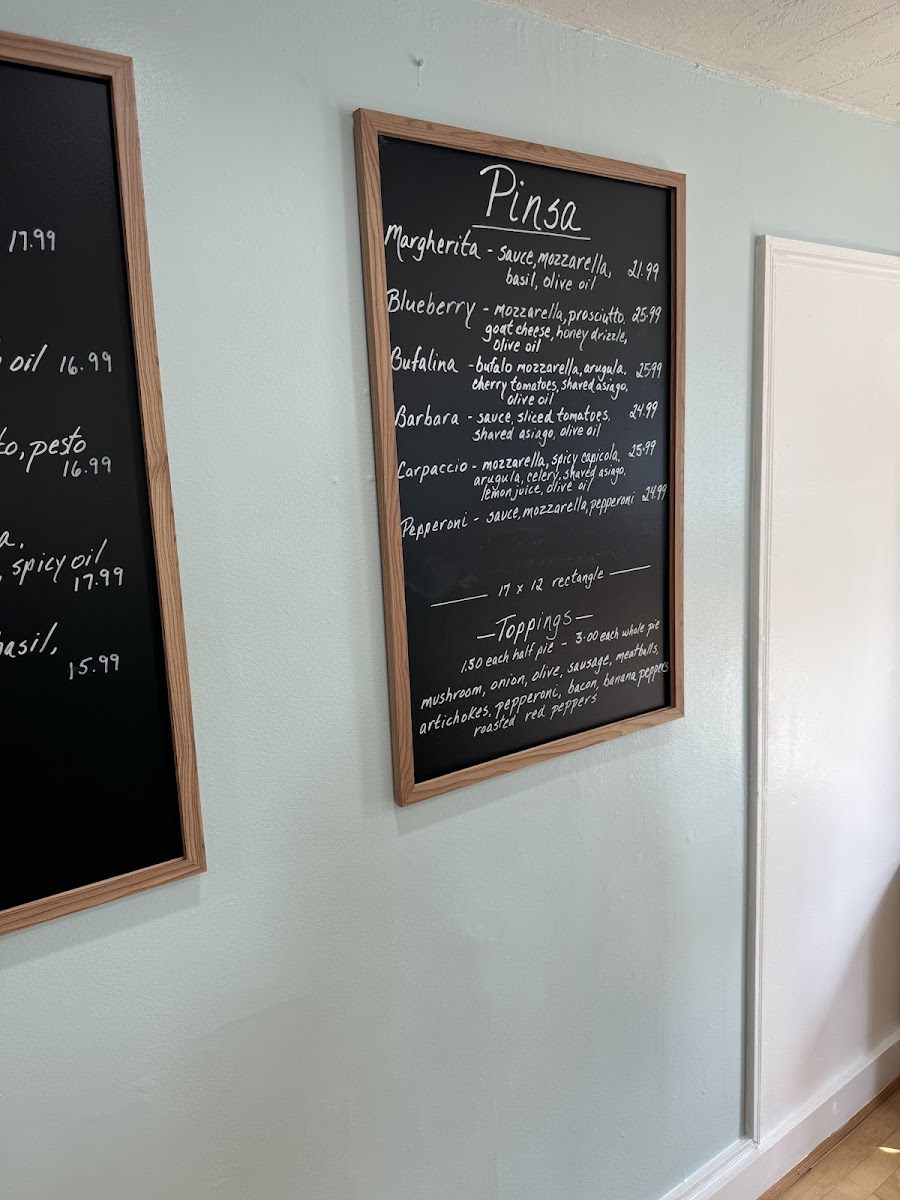 17.99
oil 16.99
pesto
16.99
spicy oil
17.99
15.99
Pinsa
Margherita - sauce, mozzarella, 21.99
basil, olive oil
Blueberry - mozzarella, prosciutto, 25.99
goat cheese, honey drizzle,
olive oil
Bufalina - bufalo mozzarella, arugula, 25.99
cherry tomatoes, shaved asiago,
olive oil
Barbara - sauce, sliced tomatoes, 24.99
shaved asiago, olive oil
Carpaccio - mozzarella, spicy capicola, 25.99
arugula, celery, shaved asiago,
lemon juice, olive oil
Pepperoni - sauce, mozzarella, pepperoni 24.99
17 x 12 rectangle
- Toppings -
1.50 each half pie - 3.00 each whole pie
mushroom, onion, olive, sausage, meatballs,
artichokes, pepperoni, bacon, banana peppers
roasted red peppers